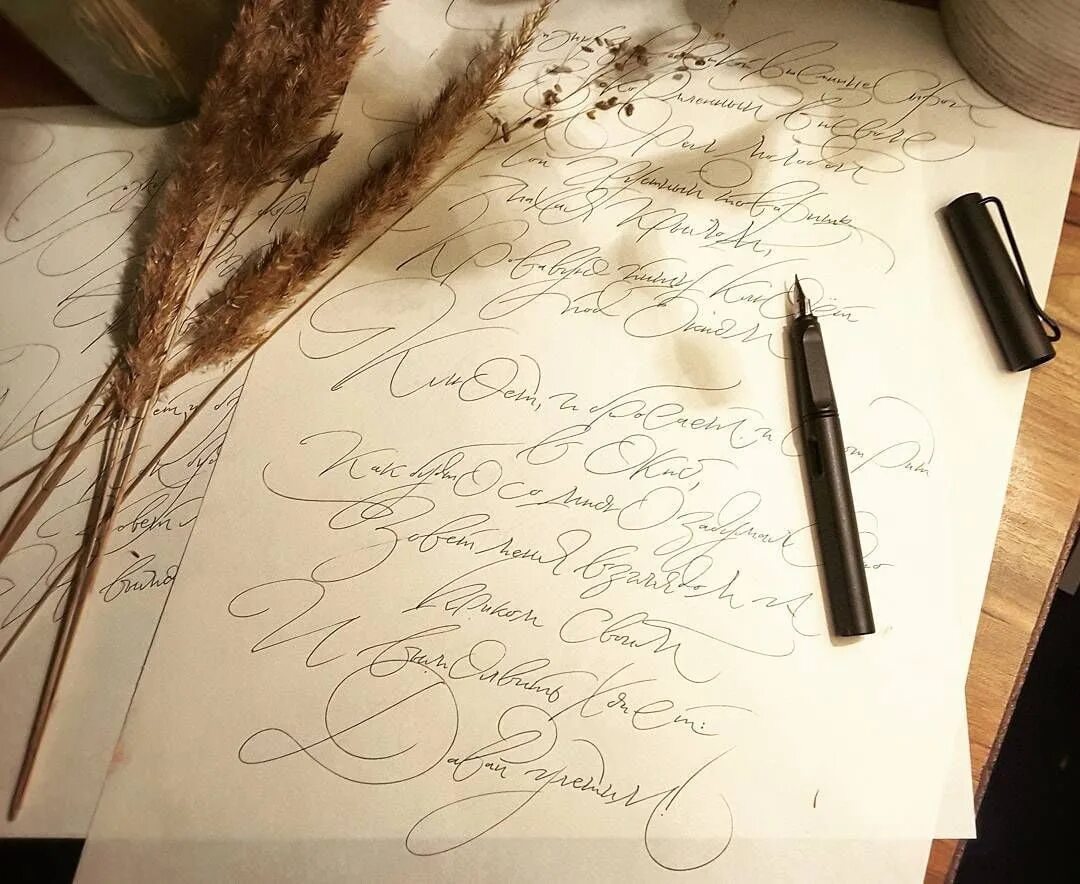 в темнице сырой
Вскормлённый в неволе
Орёл молодой
Мой грустный товарищ,
Махая крылом,
Кровавую пищу клюёт
под окном
Клюёт, и бросает, и смотрит
в окно,
Как будто со мною задумал одно
Зовёт меня взглядом и
криком своим
И вымолвить хочет:
Давай улетим!